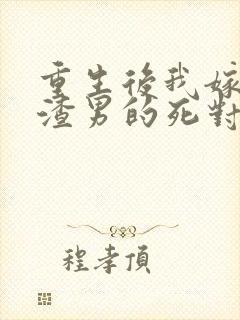 重生後我嫁
渣男的死對
程孝頂